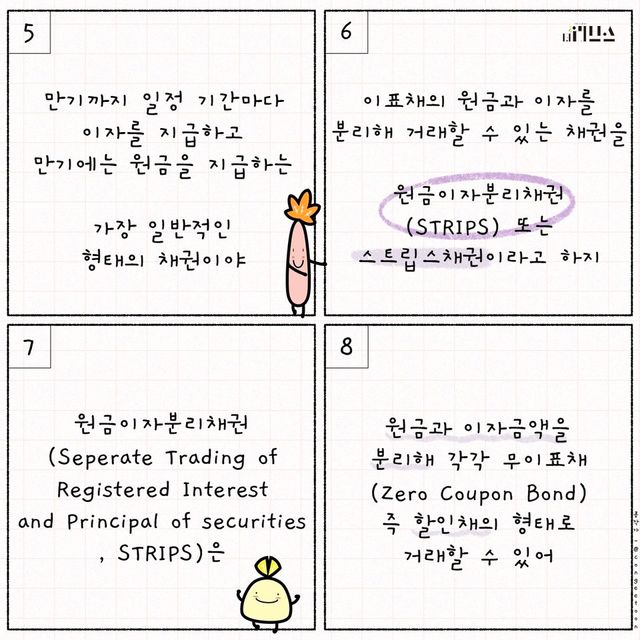 5
만기까지 일정 기간마다
이자를 지급하고
만기에는 원금을 지급하는
가장 일반적인
형태의 채권이야
6
이표채의 원금과 이자를
분리해 거래할 수 있는 채권을
원금이자분리채권
(STRIPS) 또는
스트립스채권이라고 하지
7
원금이자분리채권
(Seperate Trading of
Registered Interest
and Principal of securities
, STRIPS)은
8
원금과 이자금액을
분리해 각각 무이표채
(Zero Coupon Bond)
즉 할인채의 형태로
거래할 수 있어